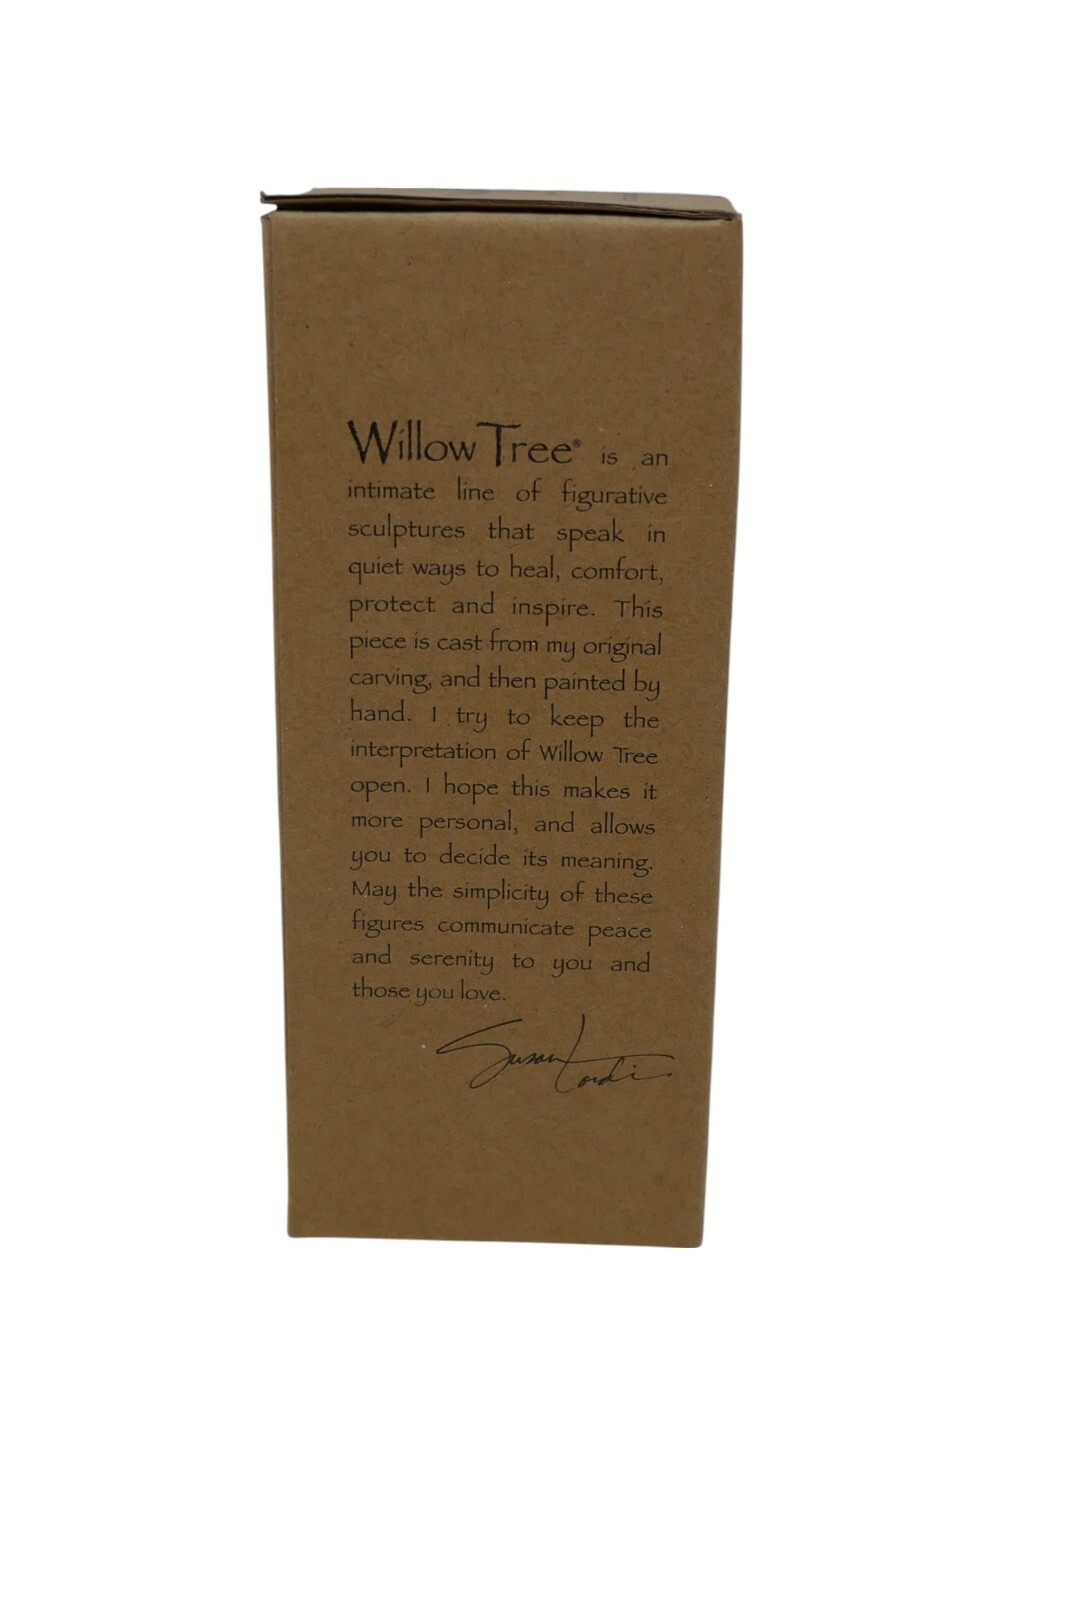 Willow Tree® is an
intimate line of figurative
sculptures that speak in
quiet ways to heal, comfort,
protect and inspire. This
piece is cast from my original
carving, and then painted by
hand. I try to keep the
interpretation of Willow Tree
open. I hope this makes it
more personal, and allows
you to decide its meaning.
May the simplicity of these
figures communicate peace
and serenity to you and
those you love.
Susan Lordi